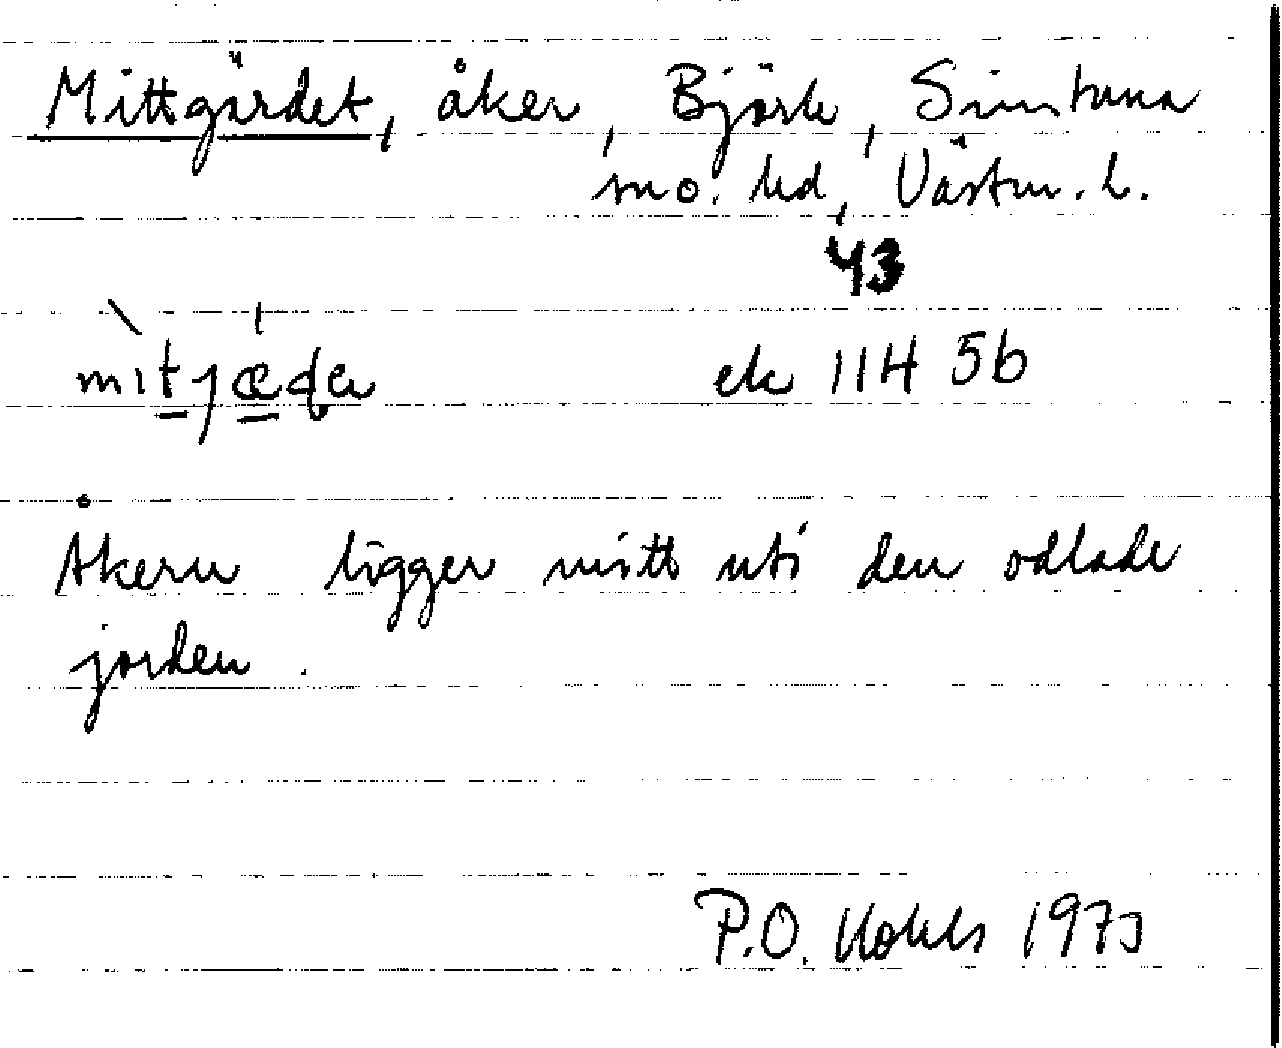 Mittgärdet, åker, Björk, Simtuna
sno. hd, Västm. l.
43
mıtjæḍa
ek 11H 5b
Åkern ligger mitt uti den odlade
jorden.
P.O. 1973